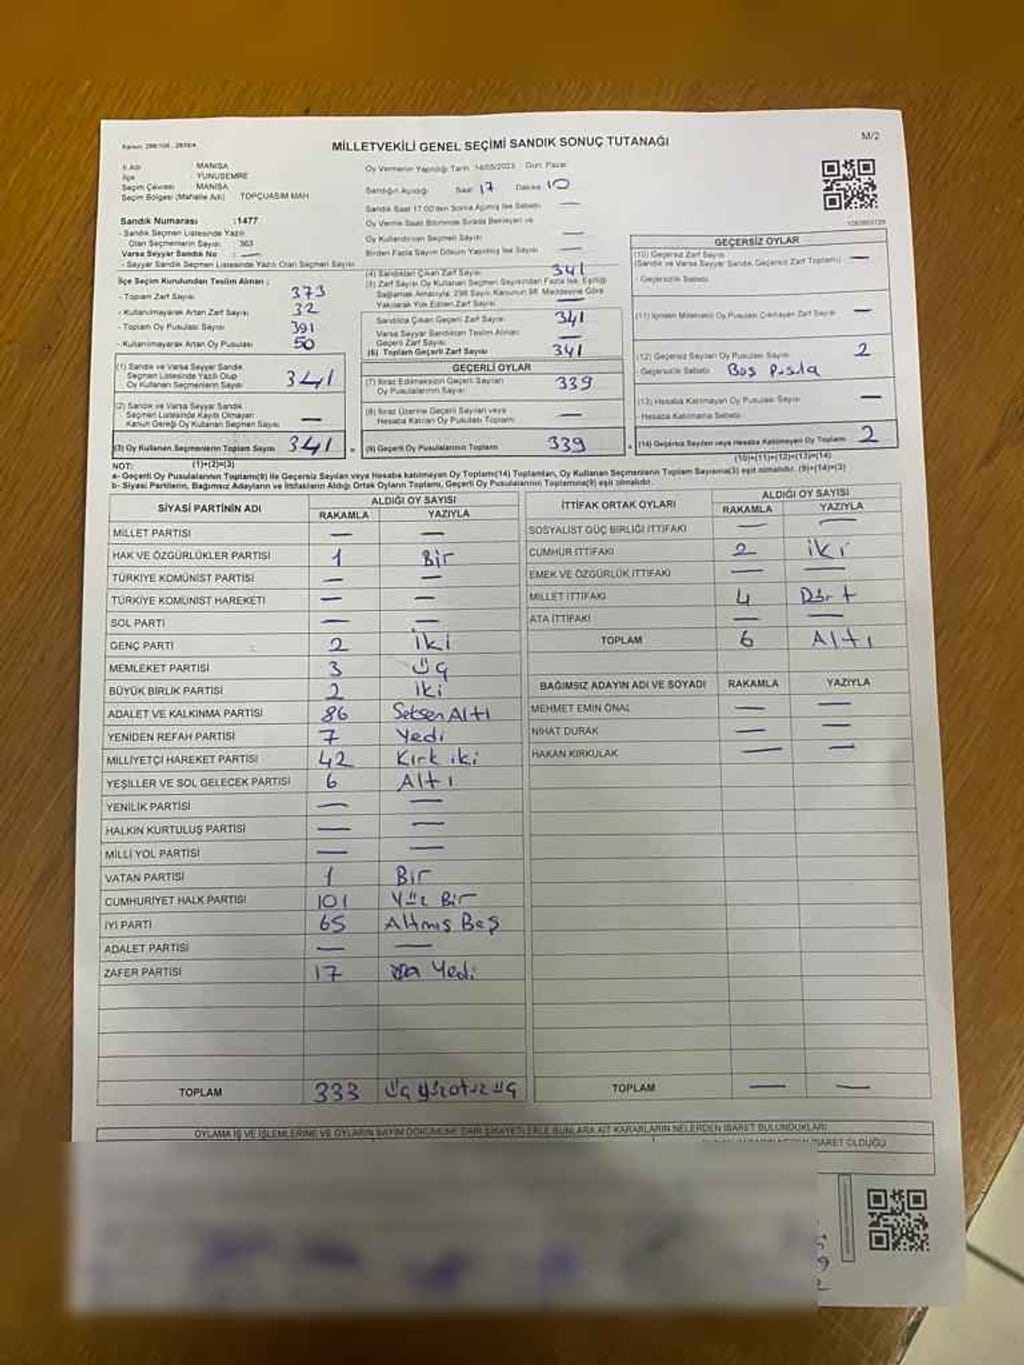 Kanun: 298/105 , 2839/4
MİLLETVEKİLİ GENEL SEÇİMİ SANDIK SONUÇ TUTANAĞI
M/2
İl Adı MANİSA
İlçe YUNUSEMRE
Seçim Çevresi MANİSA
Seçim Bölgesi (Mahalle Adı) TOPÇUASIM MAH
Sandık Numarası :1477
- Sandık Seçmen Listesinde Yazılı
Olan Seçmenlerin Sayısı: 363
Varsa Seyyar Sandık No : —
- Seyyar Sandık Seçmen Listesinde Yazılı Olan Seçmen Sayısı
İlçe Seçim Kurulundan Teslim Alınan :
- Toplam Zarf Sayısı 373
- Kullanılmayarak Artan Zarf Sayısı 32
- Toplam Oy Pusulası Sayısı 391
- Kullanılmayarak Artan Oy Pusulası 50
(1) Sandık ve Varsa Seyyar Sandık
Seçmen Listesinde Yazılı Olup
Oy Kullanan Seçmenlerin Sayısı 341
(2) Sandık ve Varsa Seyyar Sandık
Seçmen Listesinde Kayıtlı Olmayan
Kanun Gereği Oy Kullanan Seçmen Sayısı —
(3) Oy Kullanan Seçmenlerin Toplam Sayısı 341 =
(1)+(2)=(3)
Oy Vermenin Yapıldığı Tarih: 14/05/2023 Gün: Pazar
Sandığın Açıldığı Saat 17 Dakika 10
Sandık Saat 17:00'den Sonra Açılmış İse Sebebi —
Oy Verme Saati Bitiminde Sırada Bekleyen ve
Oy Kullandırılan Seçmen Sayısı —
Birden Fazla Sayım Döküm Yapılmış İse Sayısı —
(4) Sandıktan Çıkan Zarf Sayısı 341
(5) Zarf Sayısı Oy Kullanan Seçmen Sayısından Fazla İse, Eşitliği
Sağlamak Amacıyla, 298 Sayılı Kanunun 98. Maddesine Göre
Yakılarak Yok Edilen Zarf Sayısı —
Sandıkta Çıkan Geçerli Zarf Sayısı 341
Varsa Seyyar Sandıktan Teslim Alınan
Geçerli Zarf Sayısı —
(6) Toplam Geçerli Zarf Sayısı 341
GEÇERLİ OYLAR
(7) İtiraz Edilmeksizin Geçerli Sayılan
Oy Pusulalarının Sayısı 339
(8) İtiraz Üzerine Geçerli Sayılan veya
Hesaba Katılan Oy Pusulası Toplamı —
(9) Geçerli Oy Pusulalarının Toplamı 339 +
GEÇERSİZ OYLAR
(10) Geçersiz Zarf Sayısı
(Sandık ve Varsa Seyyar Sandık Geçersiz Zarf Toplamı) —
- Geçersizlik Sebebi:
(11) İçinden Milletvekili Oy Pusulası Çıkmayan Zarf Sayısı —
(12) Geçersiz Sayılan Oy Pusulası Sayısı 2
- Geçersizlik Sebebi: Boş Pusula
(13) Hesaba Katılmayan Oy Pusulası Sayısı —
- Hesaba Katılmama Sebebi:
(14) Geçersiz Sayılan veya Hesaba Katılmayan Oy Toplamı 2
(10)+(11)+(12)+(13)=(14)
NOT:
a- Geçerli Oy Pusulalarının Toplamı(9) ile Geçersiz Sayılan veya Hesaba katılmayan Oy Toplam(14) Toplamları, Oy Kullanan Seçmenlerin Toplam Sayısına(3) eşit olmalıdır. (9)+(14)=(3)
b- Siyasi Partilerin, Bağımsız Adayların ve İttifakların Aldığı Ortak Oyların Toplamı, Geçerli Oy Pusulalarının Toplamına(9) eşit olmalıdır.
SİYASİ PARTİNİN ADI ALDIĞI OY SAYISI
RAKAMLA YAZIYLA
MİLLET PARTİSİ — —
HAK VE ÖZGÜRLÜKLER PARTİSİ 1 Bir
TÜRKİYE KOMÜNİST PARTİSİ — —
TÜRKİYE KOMÜNİST HAREKETİ — —
SOL PARTİ — —
GENÇ PARTİ 2 iki
MEMLEKET PARTİSİ 3 üç
BÜYÜK BİRLİK PARTİSİ 2 iki
ADALET VE KALKINMA PARTİSİ 86 Seksen Altı
YENİDEN REFAH PARTİSİ 7 Yedi
MİLLİYETÇİ HAREKET PARTİSİ 42 Kırk iki
YEŞİLLER VE SOL GELECEK PARTİSİ 6 Altı
YENİLİK PARTİSİ — —
HALKIN KURTULUŞ PARTİSİ — —
MİLLİ YOL PARTİSİ — —
VATAN PARTİSİ 1 Bir
CUMHURİYET HALK PARTİSİ 101 Yüz Bir
İYİ PARTİ 65 Altmış Beş
ADALET PARTİSİ — —
ZAFER PARTİSİ 17 On Yedi
TOPLAM 333 üç yüzotuz üç
İTTİFAK ORTAK OYLARI ALDIĞI OY SAYISI
RAKAMLA YAZIYLA
SOSYALİST GÜÇ BİRLİĞİ İTTİFAKI — —
CUMHUR İTTİFAKI 2 iki
EMEK VE ÖZGÜRLÜK İTTİFAKI — —
MİLLET İTTİFAKI 4 Dört
ATA İTTİFAKI — —
TOPLAM 6 Altı
BAĞIMSIZ ADAYIN ADI VE SOYADI RAKAMLA YAZIYLA
MEHMET EMİN ÖNAL — —
NİHAT DURAK — —
HAKAN KIRKULAK — —
TOPLAM — —
OYLAMA İŞ VE İŞLEMLERİNE VE OYLARIN SAYIM DÖKÜMÜNE DAİR ŞİKAYETLERLE BUNLARA AİT KARARLARIN NELERDEN İBARET BULUNDUKLARI
İBARET OLDUĞU